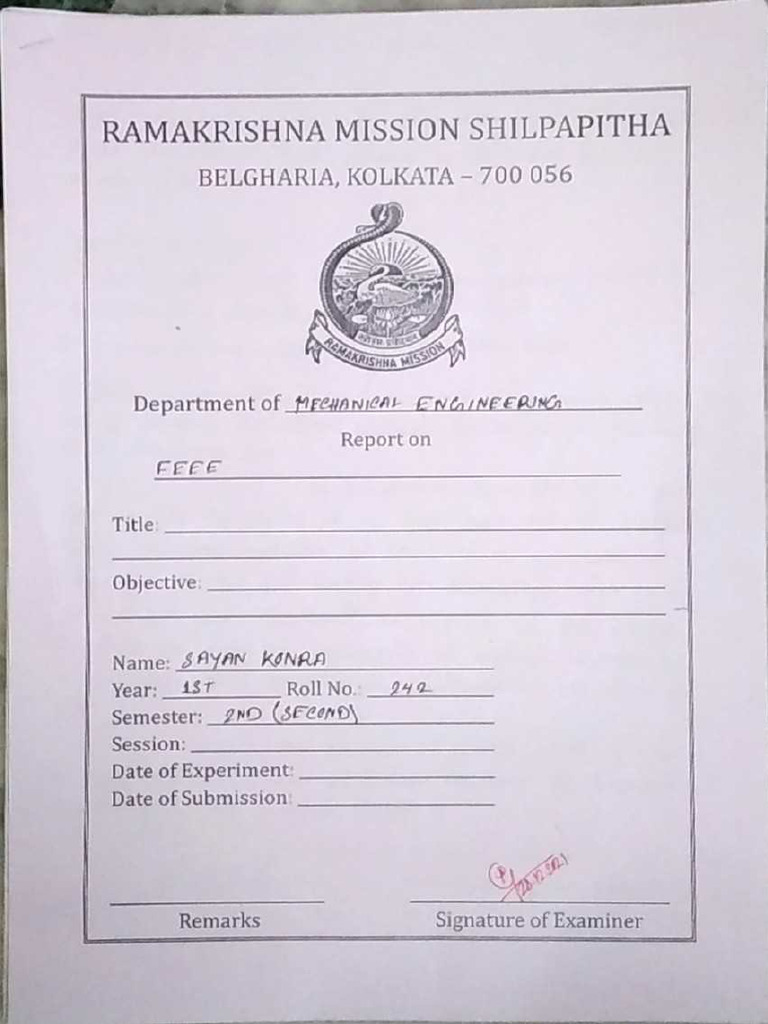 RAMAKRISHNA MISSION SHILPAPITHA
BELGHARIA, KOLKATA – 700 056
RAMAKRISHNA MISSION
Department of MECHANICAL ENGINEERING
Report on
FEEE
Title:
Objective:
Name: SAYAN KONRA
Year: 1ST Roll No.: 242
Semester: 2ND (SECOND)
Session:
Date of Experiment:
Date of Submission:
Remarks Signature of Examiner